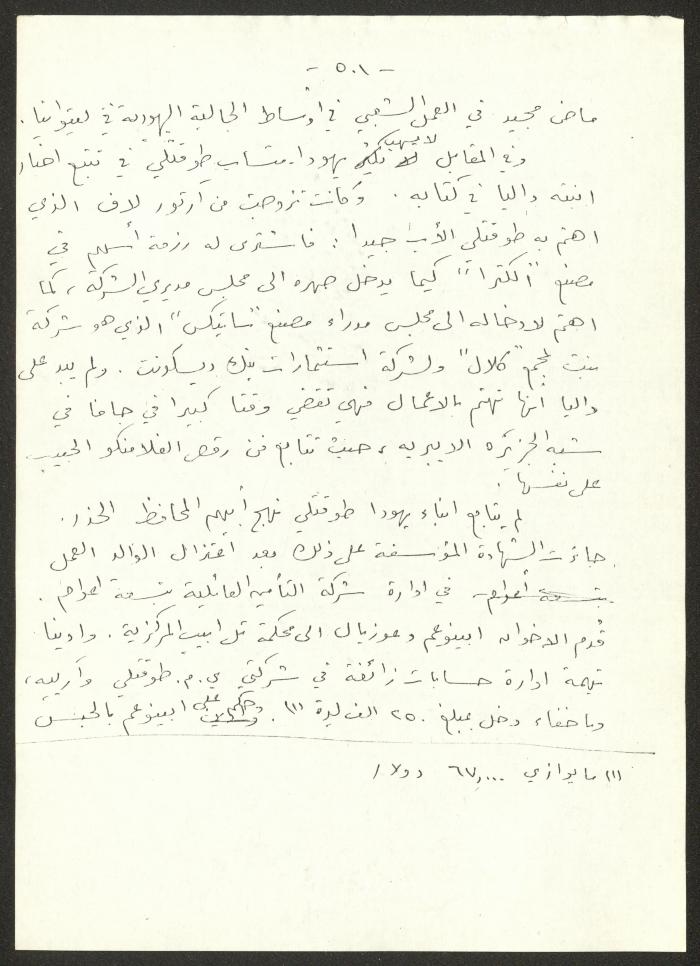 - ٥٠١ -
ماض مجيد في العمل الشعبي في أوساط الجالية اليهودية في ليتوانيا.
وفي المقابل لا يسهب يهودا متساب طوقتلي في تتبع اخبار
ابنته داليا في كتابه. وكانت تزوجت من آرتور لاف الذي
اهتم به طوقتلي الأب جيدا: فاشترى له رزمة أسهم في
مصنع "الكترا" كيما يدخل صهره الى مجلس مديري الشركة، كما
اهتم لادخاله الى مجلس مدراء مصنع "سايتكس" الذي هو شركة
بنت لمجمع "كلال" ولشركة استثمارات بنك ديسكونت. ولم يبد على
داليا أنها تهتم بالاعمال فهي تقضي وقتا كبيرا في جافا في
شبه الجزيره الايبريه، حيث تتابع فن رقص الفلامنكو الحبيب
على نفسها.
لم يتابع ابناء يهودا طوقتلي نهج أبيهم المحافظ الحذر.
جاءت الشهادة المؤسفة على ذلك بعد اعتزال الوالد العمل
بتسعة أعوام، في ادارة شركة التأمين العائلية بتسعة اعوام.
قُدم الاخوان ابينوعم وعوزيال الى محكمة تل ابيب المركزية. وادينا
بتهمة ادارة حسابات زائفة في شركتي ي.م. طوقتلي وآرييه،
وباخفاء دخل بمبلغ ٢٥٠ الف ليرة (١). وحكم على ابينوعم بالحبس
(١) ما يوازي ٦٧,٠٠٠ دولار